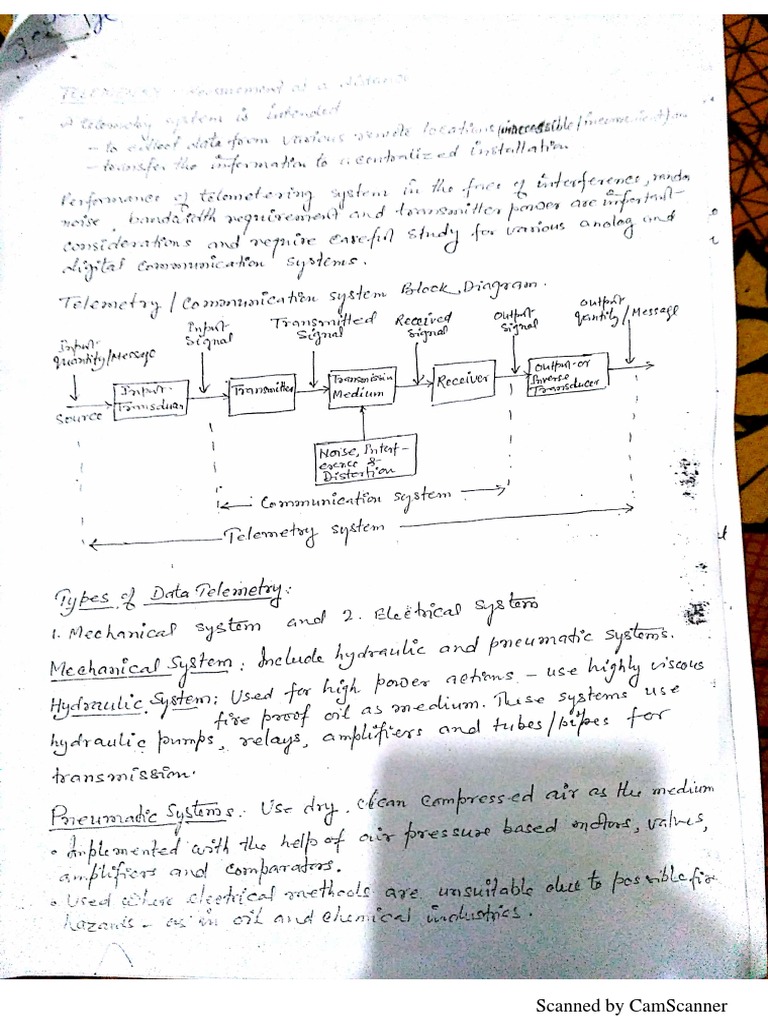 TELEMETRY - Measurement at a distance
A telemetry system is intended
- to collect data form various remote locations (inaccessible/inconvenient) an
- to transfer the information to a centralized installation.
Performance of telemetering system in the face of interference, random
noise, bandwidth requirement and transmitter power are important
considerations and require careful study for various analog and
digital communication systems.
Telemetry / Communication system Block Diagram.
Input Quantity/Message
Input Signal
Transmitted Signal
Received Signal
Output Signal
Output Quantity/Message
Source
Input Transducer
Transmitter
Transmission Medium
Receiver
Output or Inverse Transducer
Noise, Interf-
erence &
Distortion
Communication system
Telemetry system
Types of Data Telemetry:
1. Mechanical system and 2. Electrical system
Mechanical System: Include hydraulic and pneumatic systems.
Hydraulic System: Used for high power actions - use highly viscous
fire proof oil as medium. These systems use
hydraulic pumps, relays, amplifiers and tubes/pipes for
transmission.
Pneumatic Systems: Use dry, clean compressed air as the medium
• Implemented with the help of air pressure based motors, valves,
amplifiers and comparators.
• Used where electrical methods are unsuitable due to possible fire
hazards - as in oil and chemical industries.
Scanned by CamScanner